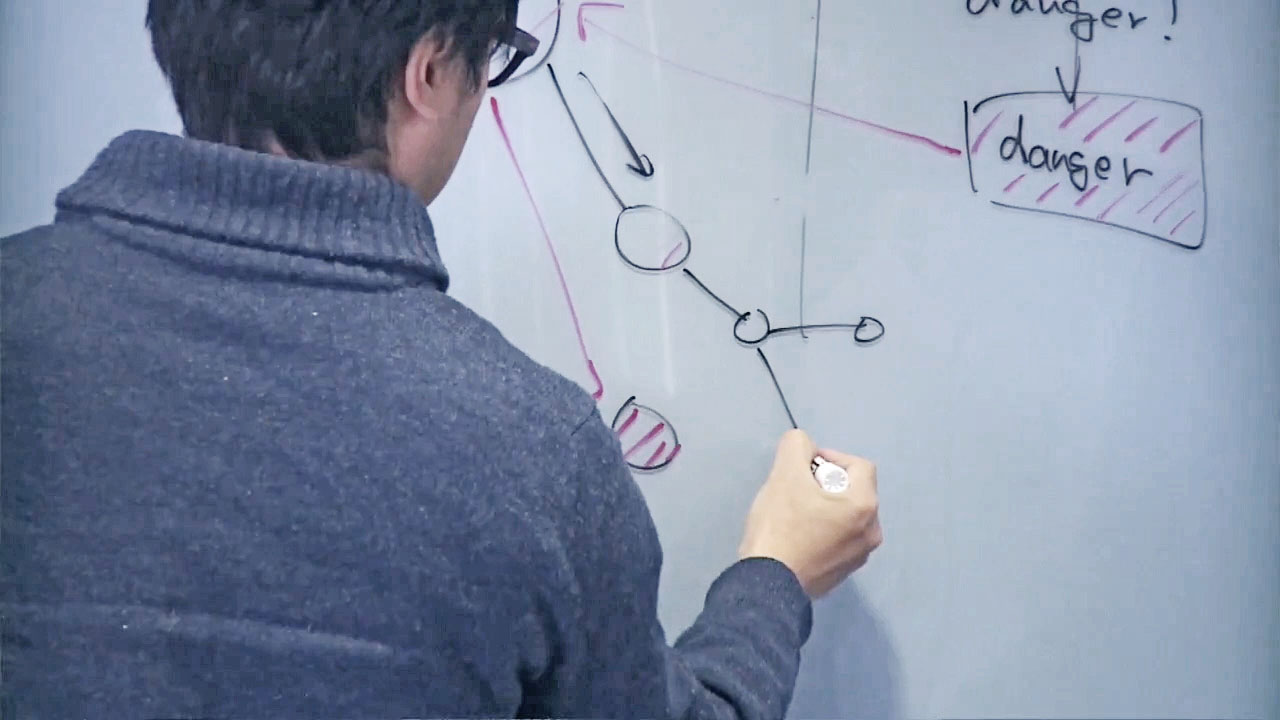 danger!
danger